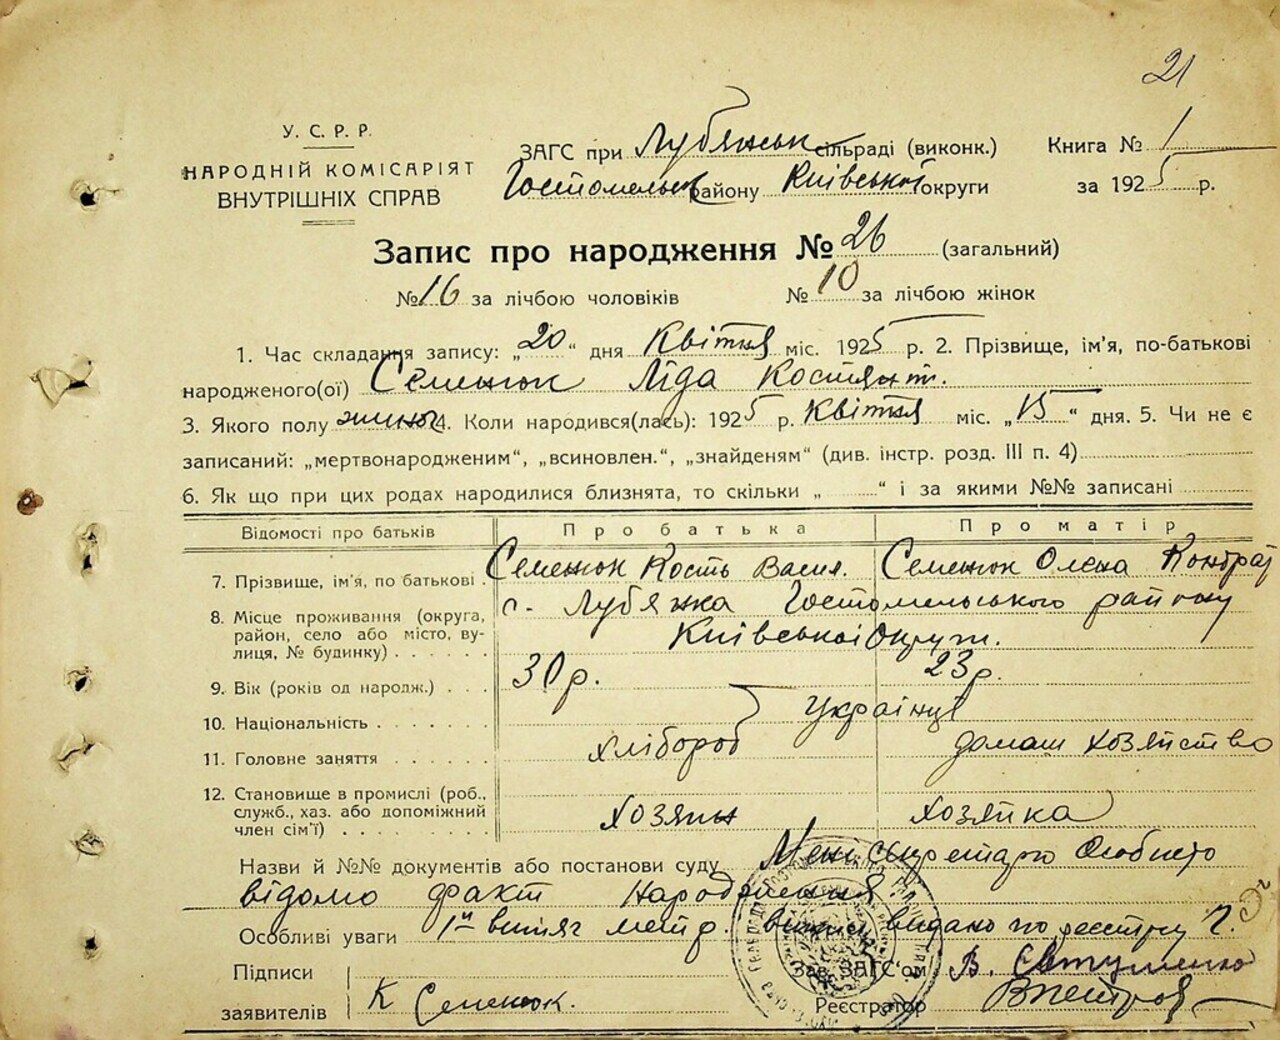 21
У. С. Р. Р.
НАРОДНІЙ КОМІСАРІЯТ
ВНУТРІШНІХ СПРАВ
ЗАГС при Лубянськ сільраді (виконк.)
Гостомельськ району Київської округи
Книга № 1
за 1925 р.
Запис про народження № 26 (загальний)
№ 16 за лічбою чоловіків № 10 за лічбою жінок
1. Час складання запису: „20“ дня Квітня міс. 1925 р. 2. Прізвище, ім'я, по-батькові
народженого(ої) Семенюк Ліда Костянт.
3. Якого полу жіноч 4. Коли народився(лась): 1925 р. Квітня міс. „15“ дня. 5. Чи не є
записаний: „мертвонародженим“, „всиновлен.“, „знайденям“ (див. інстр. розд. III п. 4)
6. Як що при цих родах народилися близнята, то скільки „ “ і за якими №№ записані
Відомості про батьків Про батька Про матір
7. Прізвище, ім'я, по батькові Семенюк Кость Васил. Семенюк Олена Кондрат
8. Місце проживання (округа, район, село або місто, вулиця, № будинку) с. Лубянка Гостомельського району
Київської Округи.
9. Вік (років од народж.) 30 р. 23 р.
10. Національність Українці
11. Головне заняття хлібороб домаш хозяйство
12. Становище в промислі (роб., служб., хаз. або допоміжний член сім'ї) хозяин хозяйка
Назви й №№ документів або постанови суду Мені секретарю Особисто
відомо факт Народження
Особливі уваги 1й витяг метр. видано по реєстру Ч.
Підписи
заявителів К Семенюк.
Зав. ЗАГС'ом В. Євтушенко
Реєстратор ВПетров